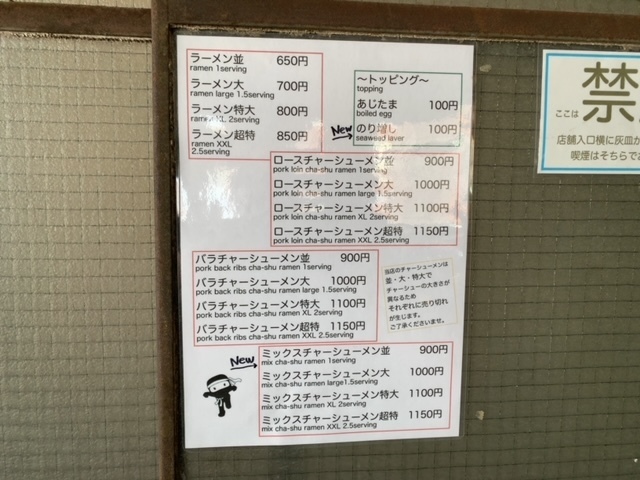 ラーメン並 650円
ramen 1serving
ラーメン大 700円
ramen large 1.5serving
ラーメン特大 800円
ramen XL 2serving
ラーメン超特 850円
ramen XXL
2.5serving
〜トッピング〜
topping
あじたま 100円
boiled egg
New
のり増し 100円
seaweed laver
ロースチャーシューメン並 900円
pork loin cha-shu ramen 1serving
ロースチャーシューメン大 1000円
pork loin cha-shu ramen large 1.5serving
ロースチャーシューメン特大 1100円
pork loin cha-shu ramen XL 2serving
ロースチャーシューメン超特 1150円
pork loin cha-shu ramen XXL 2.5serving
バラチャーシューメン並 900円
pork back ribs cha-shu ramen 1serving
バラチャーシューメン大 1000円
pork back ribs cha-shu ramen large 1.5serving
バラチャーシューメン特大 1100円
pork back ribs cha-shu ramen XL 2serving
バラチャーシューメン超特 1150円
pork back ribs cha-shu ramen XXL 2.5serving
当店のチャーシューメンは
並・大・特大で
チャーシューの大きさが
異なるため
それぞれに売り切れ
が生じます。
ご了承くださいませ。
New
ミックスチャーシューメン並 900円
mix cha-shu ramen 1serving
ミックスチャーシューメン大 1000円
mix cha-shu ramen large1.5serving
ミックスチャーシューメン特大 1100円
mix cha-shu ramen XL 2serving
ミックスチャーシューメン超特 1150円
mix cha-shu ramen XXL 2.5serving
ここは 禁
店舗入口横に灰皿が
喫煙はそちらでお